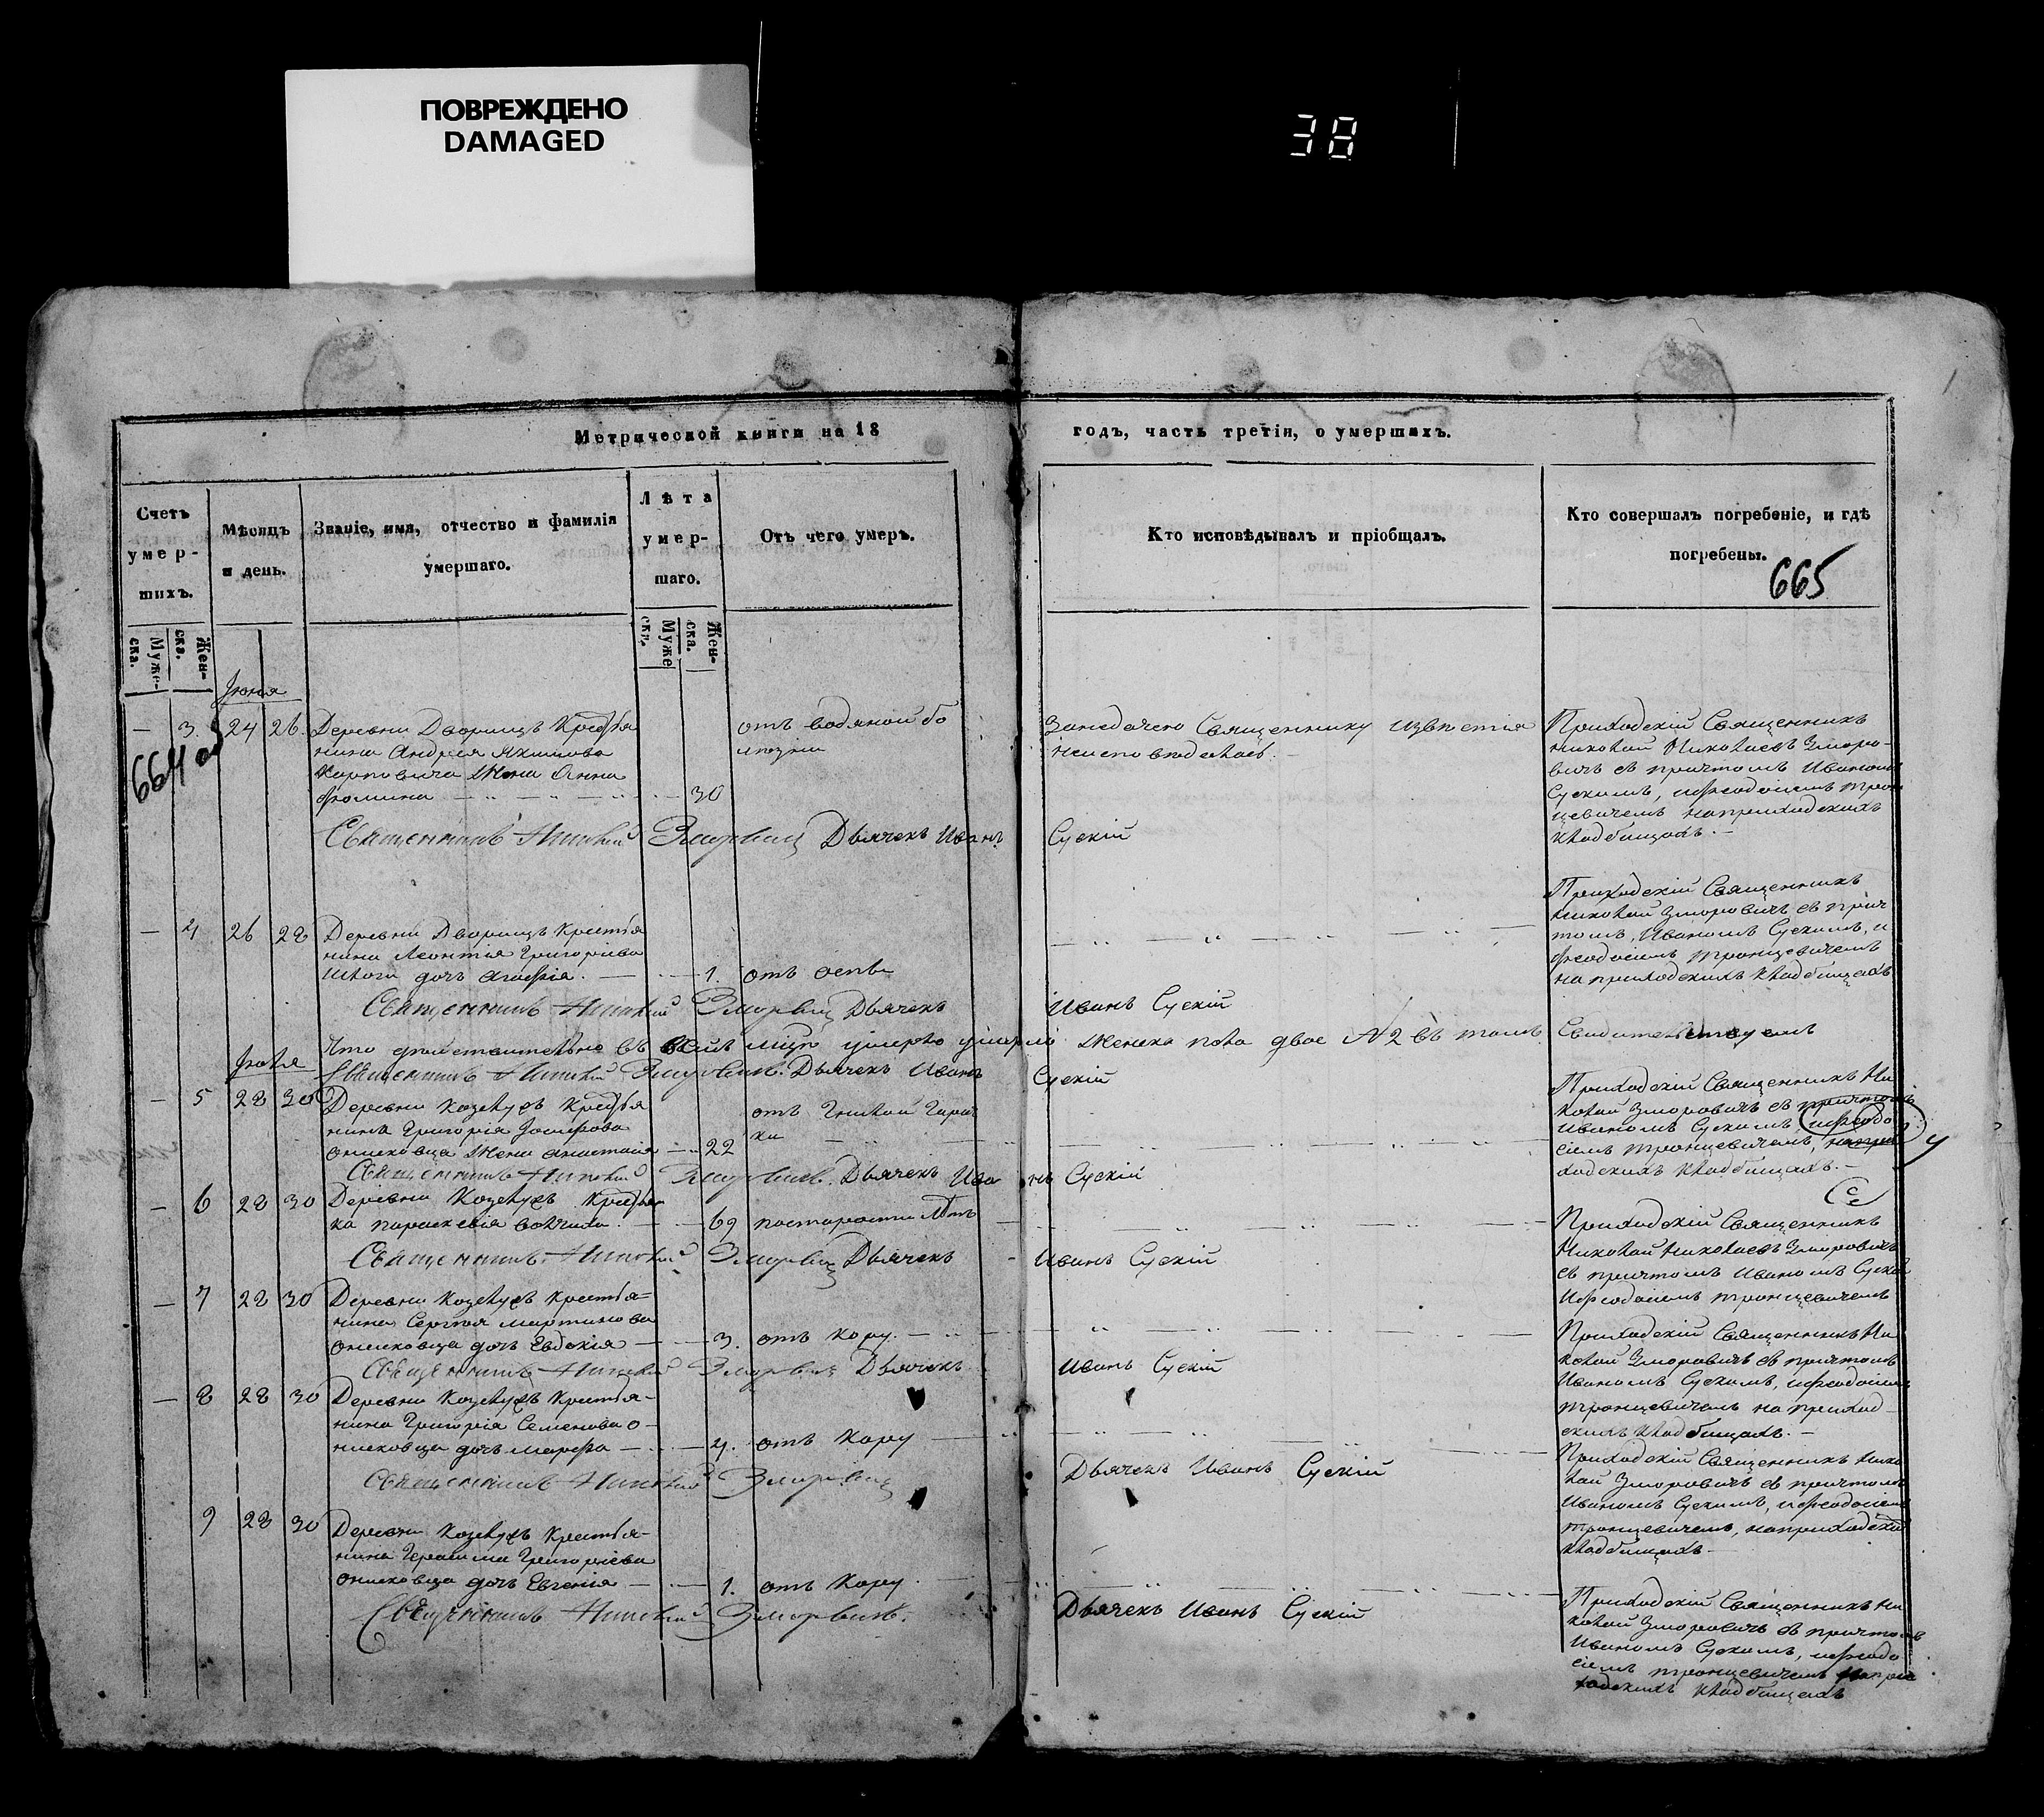 ПОВРЕЖДЕНО
DAMAGED
38
Метрической книги на 18 годъ, часть третія, о умершихъ.
Счетъ умер-шихъ.
Муже-ска.
Жен-ска.
Мѣсяцъ и день.
Званіе, имя, отчество и фамилія умершаго.
Лѣта умер-шаго.
Муже ск.
Жен-ска.
Отъ чего умеръ.
Кто исповѣдывалъ и пріобщалъ.
Кто совершалъ погребеніе, и гдѣ погребены.
665
664 об
Іюня
— 3. 24 26. Деревни Дворищъ Крестья
нина Андрея Якимова
Карповича жена Анна
Фомина — 30
отъ водяной бо
лѣзни
Занедачею Священнику извѣстія
неисповѣдована. —
Приходскій Священникъ
Николай Николаевъ Зморо-
вичъ съ причтомъ Иваномъ
Сускимъ, иѲеодосіемъ Трон
цевичемъ наприходскихъ
кладбищахъ. —
Священникъ Николай Зморовичъ Дьячекъ Иванъ Сускій
— 4 26 28 Деревни Дворищъ Крестья
нина Леонтія Григоріева
дочь Агафія. — 1. отъ оспы
Приходскій Священникъ
Николай Зморовичъ съ прич
томъ, Иваномъ Сускимъ, и
Ѳеодосіемъ Тронцевичемъ
на приходскихъ кладбищахъ
Священникъ Николай Зморовичъ Дьячекъ Иванъ Сускій
Что дѣйствительно въ семъ мцѣ умерло женска пола двое № 2 въ томъ Свидѣтельствуемъ
Священникъ Николай Зморовичъ. Дьячекъ Иванъ Сускій
Іюля
— 5 28 30 Деревни Козелужъ Крестья
нина Григорія Іосифова
Онисковца жена Анастасія — 22
отъ Гнилой Горяч
ки
Приходскій Священникъ Ни
колай Зморовичъ съ причтомъ
Иваномъ Сускимъ, иѲеодо
сіемъ Тронцевичемъ, напри
ходскихъ кладбищахъ. —
Священникъ Николай Зморовичъ. Дьячекъ Иванъ Сускій
— 6 28 30 Деревни Козелужъ Крестьян
ка Параскевія — 69 постарости лѣтъ
Приходскій Священникъ
Николай Николаевъ Зморовичъ
съ причтомъ Иваномъ Сускимъ
иѲеодосіемъ Тронцевичемъ
Священникъ Николай Зморовичъ Дьячекъ Иванъ Сускій
— 7 28 30 Деревни Козелужъ Крестья-
нина Сергѣя Мартинова
Онисковца дочь Евдокія — 3. отъ Кору. —
Приходскій Священникъ Ни
колай Зморовичъ съ причтомъ
Иваномъ Сускимъ, иѲеодосіемъ
Тронцевичемъ на приход-
скихъ кладбищахъ. —
Священникъ Николай Зморовичъ Дьячекъ Иванъ Сускій
— 8 28 30 Деревни Козелужъ Крестья-
нина Григорія Семенова О-
нисковца дочь Марфа — 4. отъ Кору
Приходскій Священникъ Нико
лай Зморовичъ съ причтомъ
Иваномъ Сускимъ, иѲеодосіемъ
Тронцевичемъ, наприходскихъ
кладбищахъ —
Священникъ Николай Зморовичъ Дьячекъ Иванъ Сускій
9 28 30 Деревни Козелужъ Крестья-
нина Герасима Григоріева
Онисковца дочь Евгенія — 1. отъ Кору.
Приходскій Священникъ Ни
колай Зморовичъ съ причтомъ
Иваномъ Сускимъ, иѲеодо
сіемъ Тронцевичемъ напри
ходскихъ кладбищахъ
Священникъ Николай Зморовичъ. Дьячекъ Иванъ Сускій